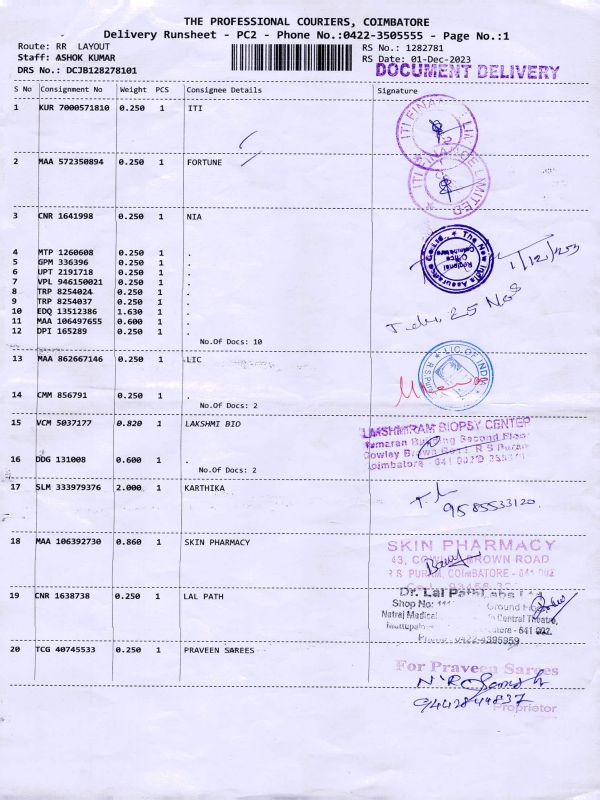 THE PROFESSIONAL COURIERS, COIMBATORE
Delivery Runsheet - PC2 - Phone No.:0422-3505555 - Page No.:1
Route: RR LAYOUT RS No.: 1282781
Staff: ASHOK KUMAR RS Date: 01-Dec-2023
DRS No.: DCJB128278101 DOCUMENT DELIVERY
S No Consignment No Weight PCS Consignee Details Signature
1 KUR 7000571810 0.250 1 ITI
ITI FINANCE LIMITED
2 MAA 572350894 0.250 1 FORTUNE
ITI FINANCE LIMITED
3 CNR 1641998 0.250 1 NIA
The New India Assurance Co. Ltd.
Regional Office
Coimbatore
1/12/203
4 MTP 1260608 0.250 1 .
5 GPM 336396 0.250 1 .
6 UPT 2191718 0.250 1 .
7 VPL 946150021 0.250 1 .
8 TRP 8254024 0.250 1 .
9 TRP 8254037 0.250 1 .
10 EDQ 13512386 1.630 1 .
11 MAA 106497655 0.600 1 .
12 DPI 165289 0.250 1 .
25 Nos
No.Of Docs: 10
13 MAA 862667146 0.250 1 LIC
LIC OF INDIA
14 CMM 856791 0.250 1 .
No.Of Docs: 2
15 VCM 5037177 0.820 1 LAKSHMI BIO
LAKSHMIRAM BIOPSY CENTER
Kumaran Building Second Floor
Cowley Brown Road R S Puram
Coimbatore - 641 002
16 DDG 131008 0.600 1 .
No.Of Docs: 2
17 SLM 333979376 2.000 1 KARTHIKA
9585533120
18 MAA 106392730 0.860 1 SKIN PHARMACY
SKIN PHARMACY
43, COWLEY BROWN ROAD
R S PURAM, COIMBATORE - 641 002
19 CNR 1638738 0.250 1 LAL PATH
Dr. Lal PathLabs Ltd
Shop No: Ground Floor
Natraj Medical Central Theatre,
641 002.
Phone: 0422-4395959
20 TCG 40745533 0.250 1 PRAVEEN SAREES
For Praveen Sarees
9442844837
Proprietor